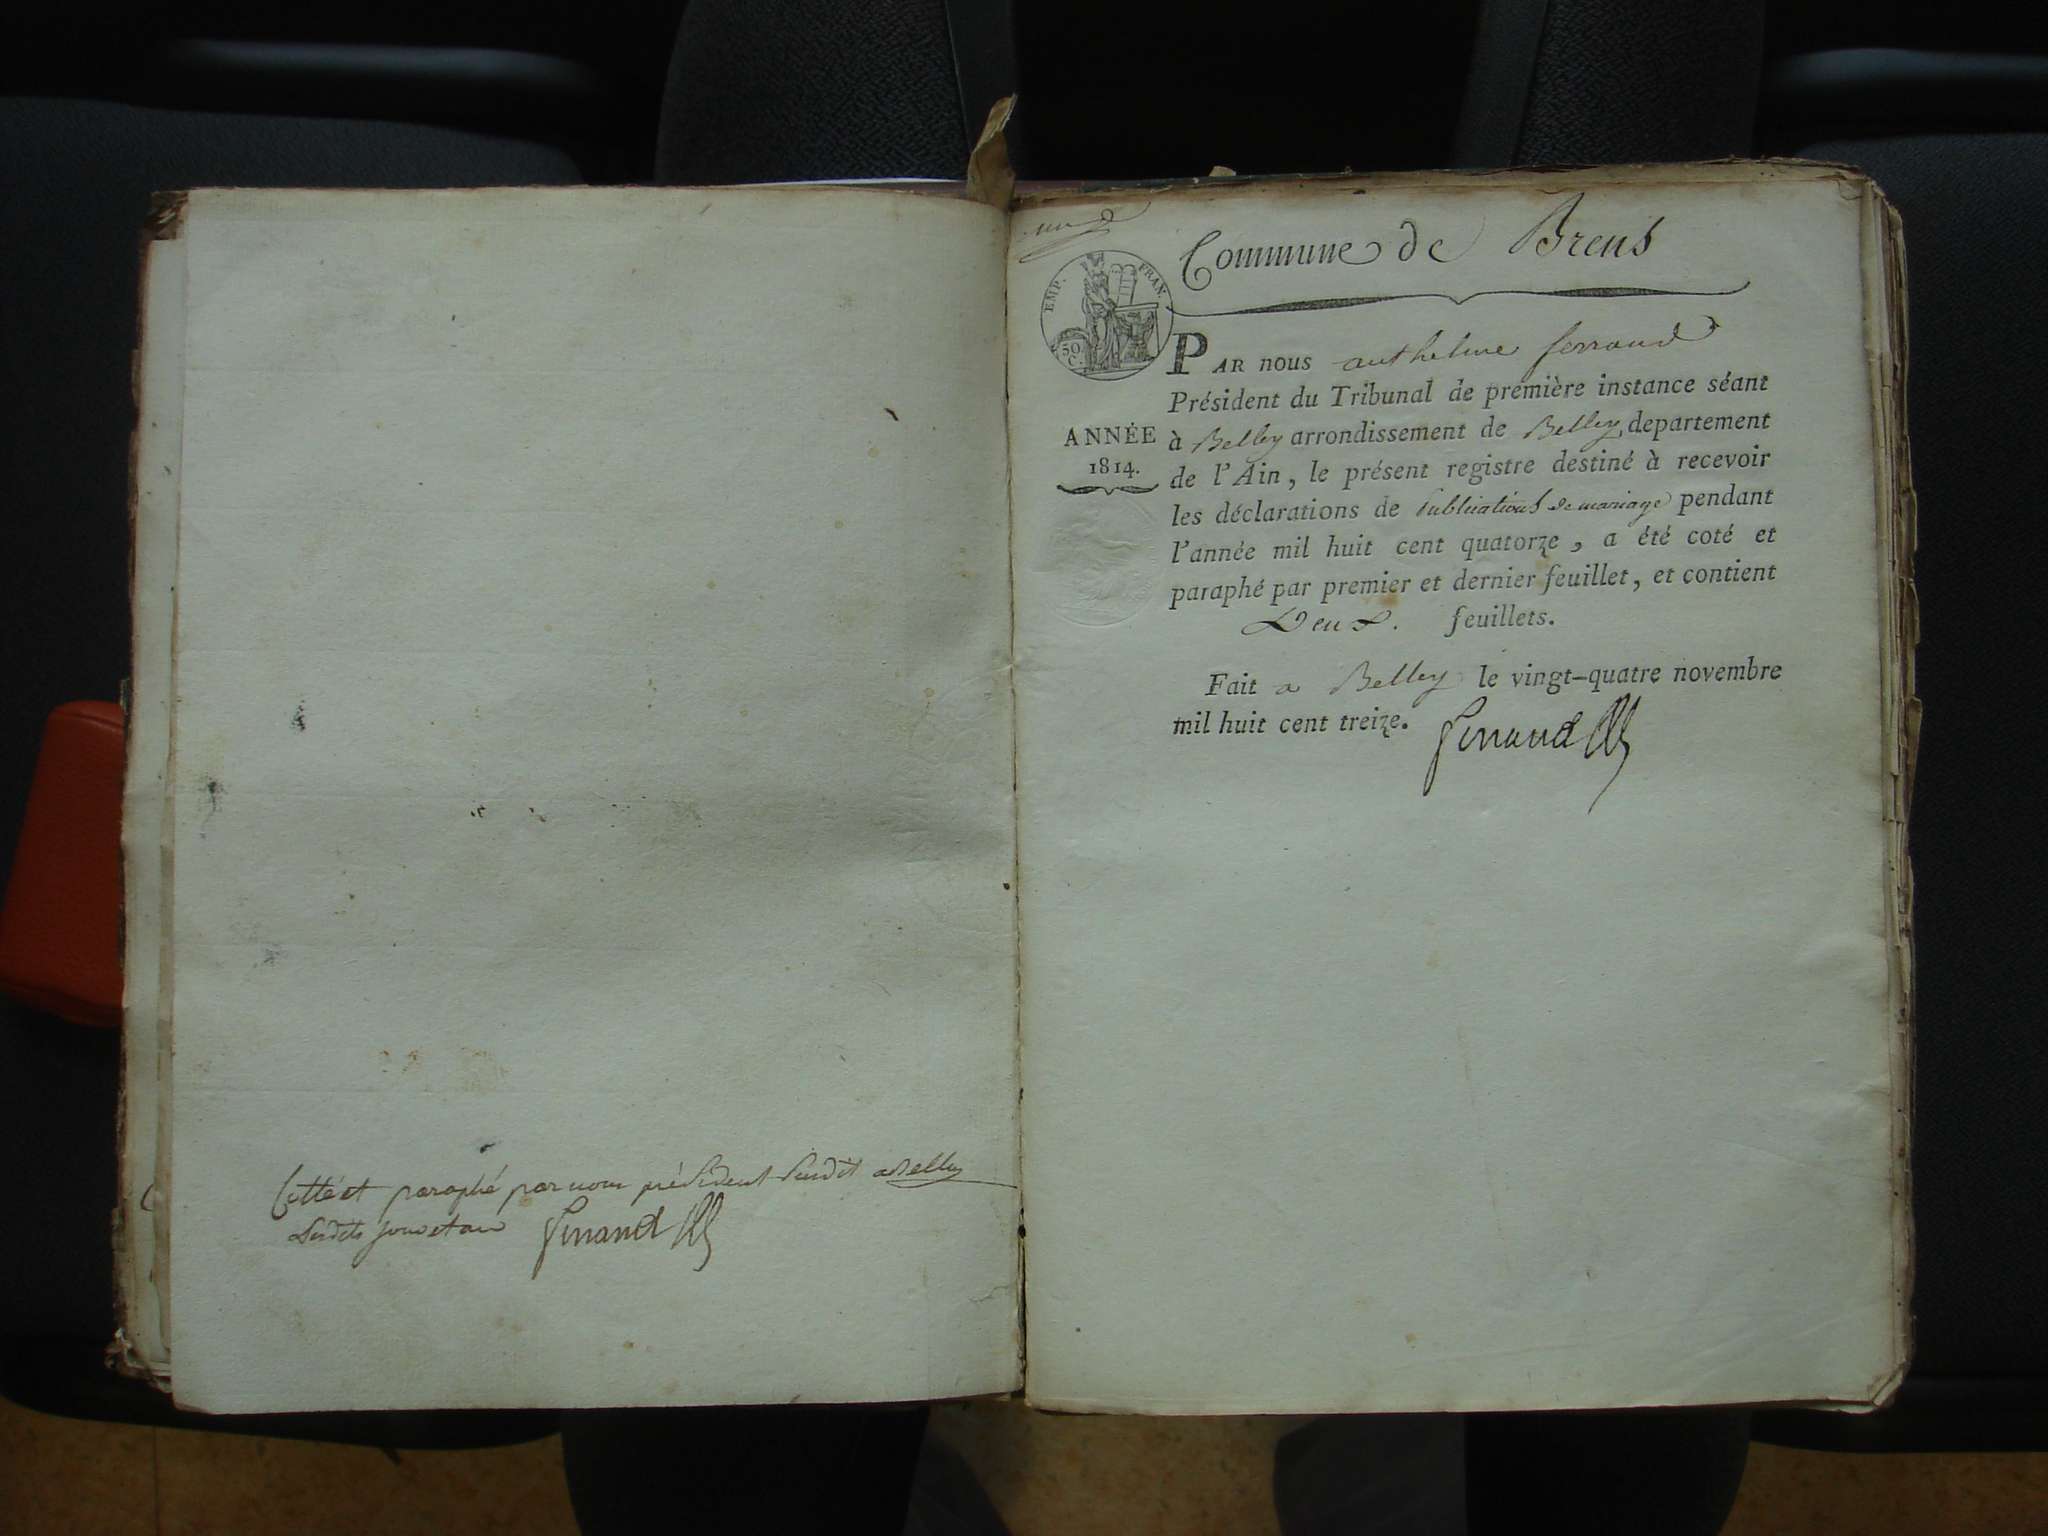 Cotté et paraphé par nous président susdit a Belley
Lesdits jour et an Ferrand
une
Commune de Brens
EMP. FRAN.
50 C.
PAR nous anthelme ferrand
Président du Tribunal de première instance séant
ANNÉE
1814.
à Belley arrondissement de Belley, departement
de l'Ain, le présent registre destiné à recevoir
les déclarations de Publications de mariage pendant
l'année mil huit cent quatorze, a été coté et
paraphé par premier et dernier feuillet, et contient
Deux. feuillets.
Fait a Belley le vingt-quatre novembre
mil huit cent treize. Ferrand